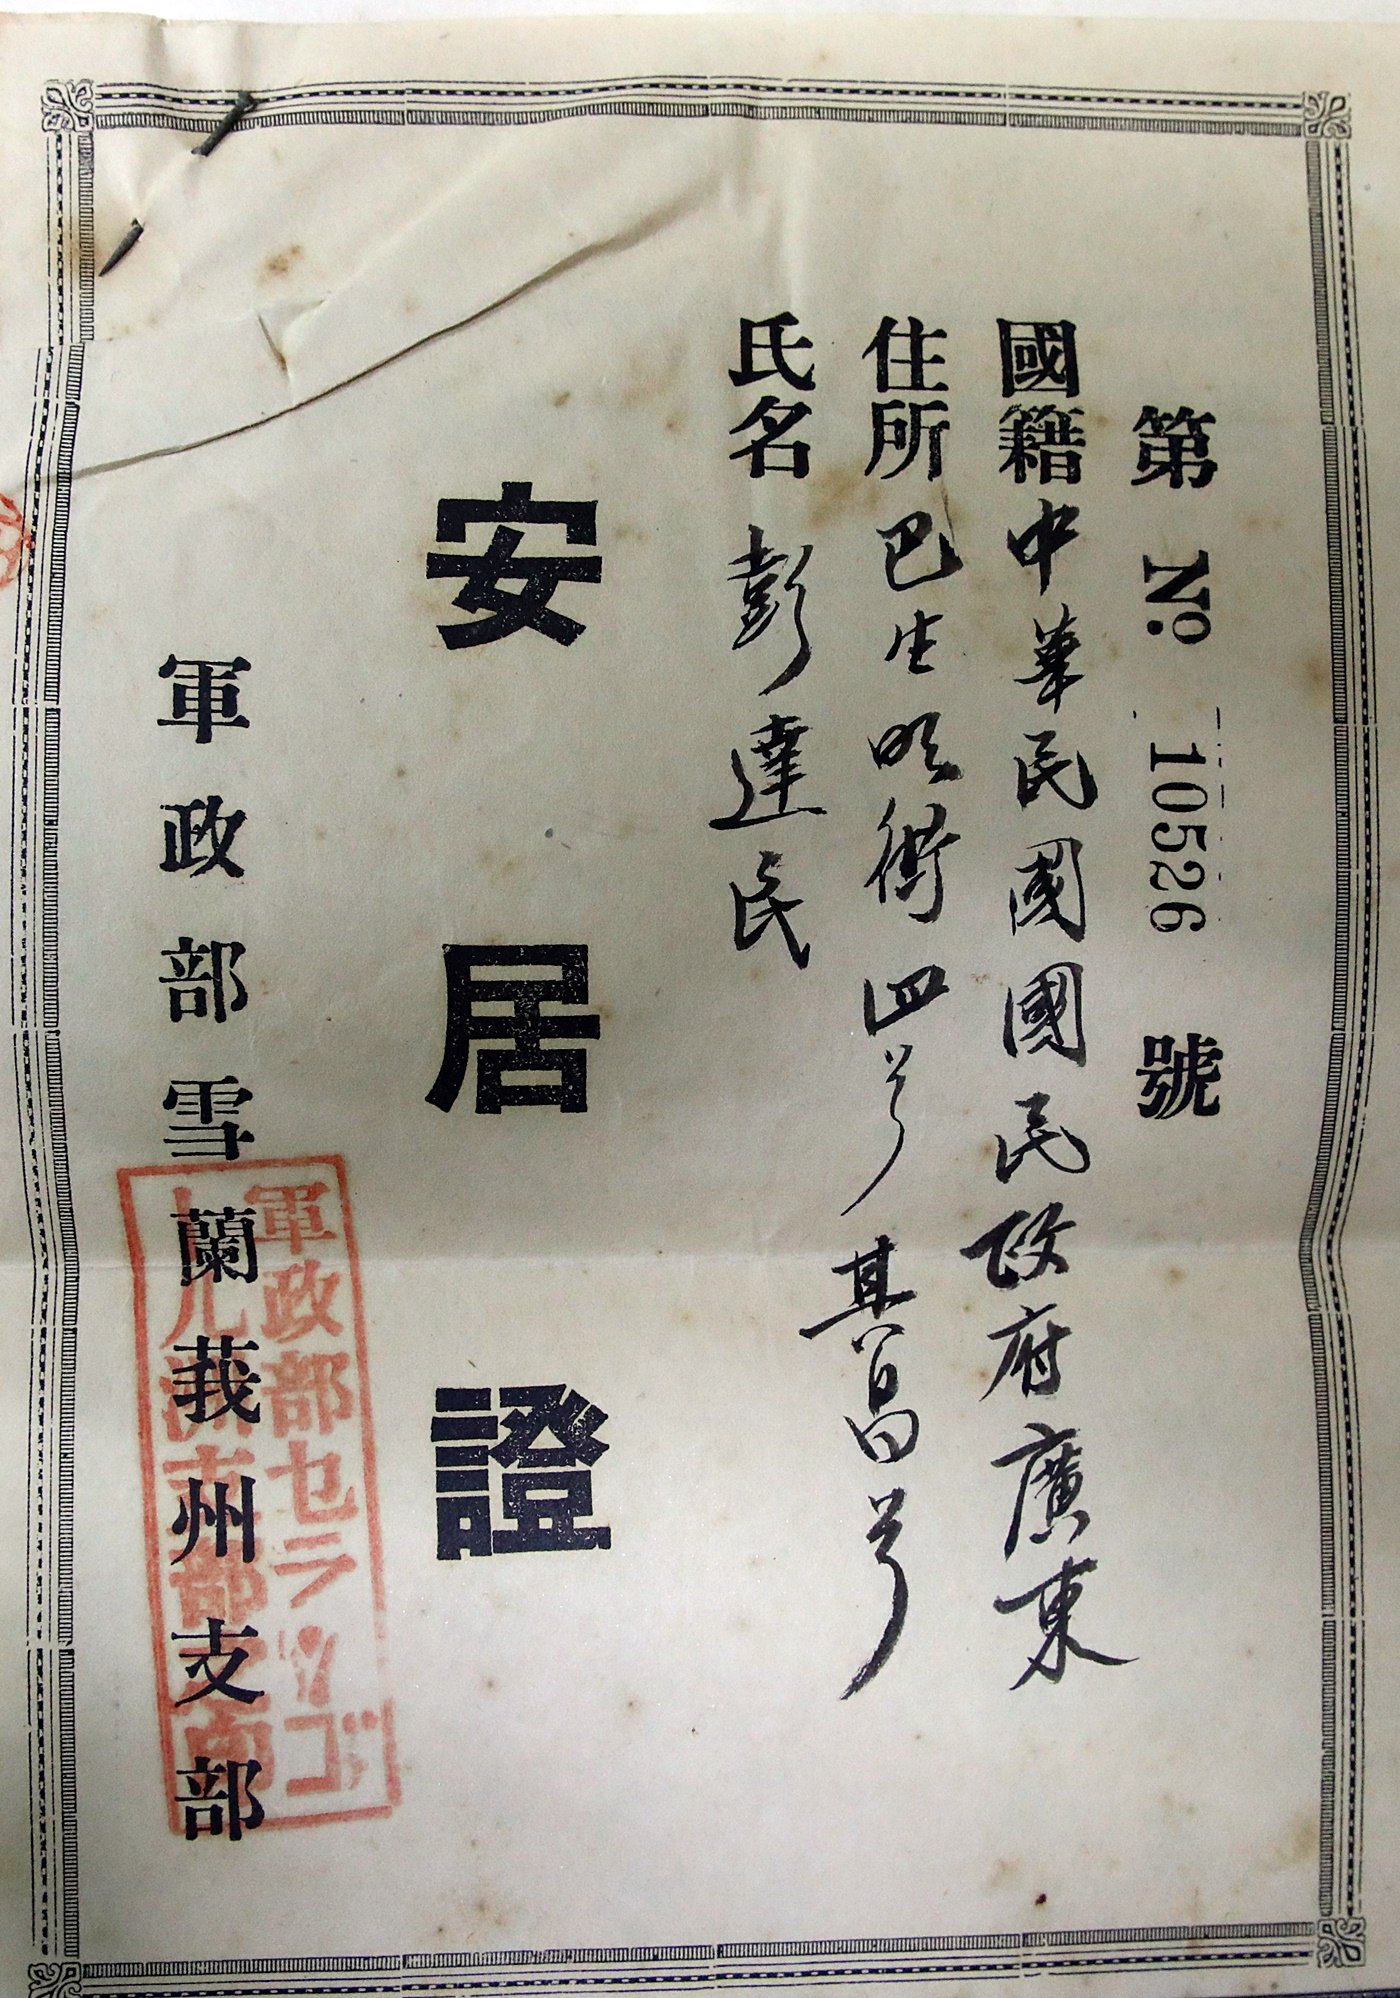 第 No. 10526 號
國籍 中華民國國民政府廣東
住所 巴生 街四号 其昌号
氏名 彭達民
安居證
軍政部雪蘭莪州支部
軍政部セランゴ
ール州支部